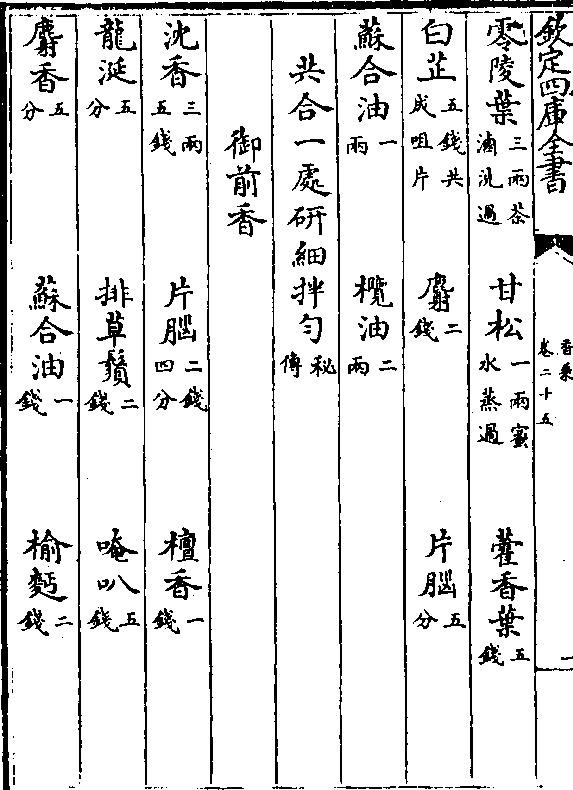 欽定四庫全書
香乘
卷二十五
零陵葉三兩茶滷洗過 甘松一兩蜜水蒸過 藿香葉五錢
白芷五錢共成咀片 麝二錢 片腦五分
蘇合油一兩 欖油二兩
共合一處研細拌勻秘傳
御前香
沈香三兩五錢 片腦二錢四分 檀香一錢
龍涎五分 排草鬚二錢 唵叭五錢
麝香五分 蘇合油一錢 榆麪二錢